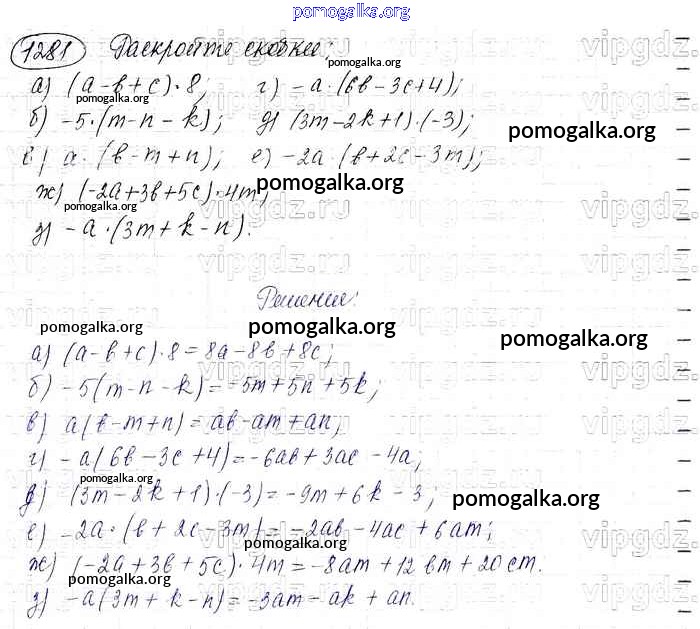 pomogalka.org
1281 Раскройте скобки:
pomogalka.org
а) (a-b+c)·8; г) -a·(6b-3c+4);
pomogalka.org
б) -5·(m-n-k); д) (3m-2k+1)·(-3);
pomogalka.org
в) a·(b-m+n); е) -2a·(b+2c-3m);
pomogalka.org
ж) (-2a+3b+5c)·4m;
pomogalka.org
з) -a·(3m+k-n).
Решение:
pomogalka.org pomogalka.org pomogalka.org
а) (a-b+c)·8=8a-8b+8c;
б) -5(m-n-k)=-5m+5n+5k;
в) a(b-m+n)=ab-am+an;
г) -a(6b-3c+4)=-6ab+3ac-4a;
pomogalka.org
д) (3m-2k+1)·(-3)=-9m+6k-3;
pomogalka.org
е) -2a·(b+2c-3m)=-2ab-4ac+6am;
pomogalka.org
ж) (-2a+3b+5c)·4m=-8am+12bm+20cm.
pomogalka.org
з) -a(3m+k-n)=-3am-ak+an.
vipgdz.ru